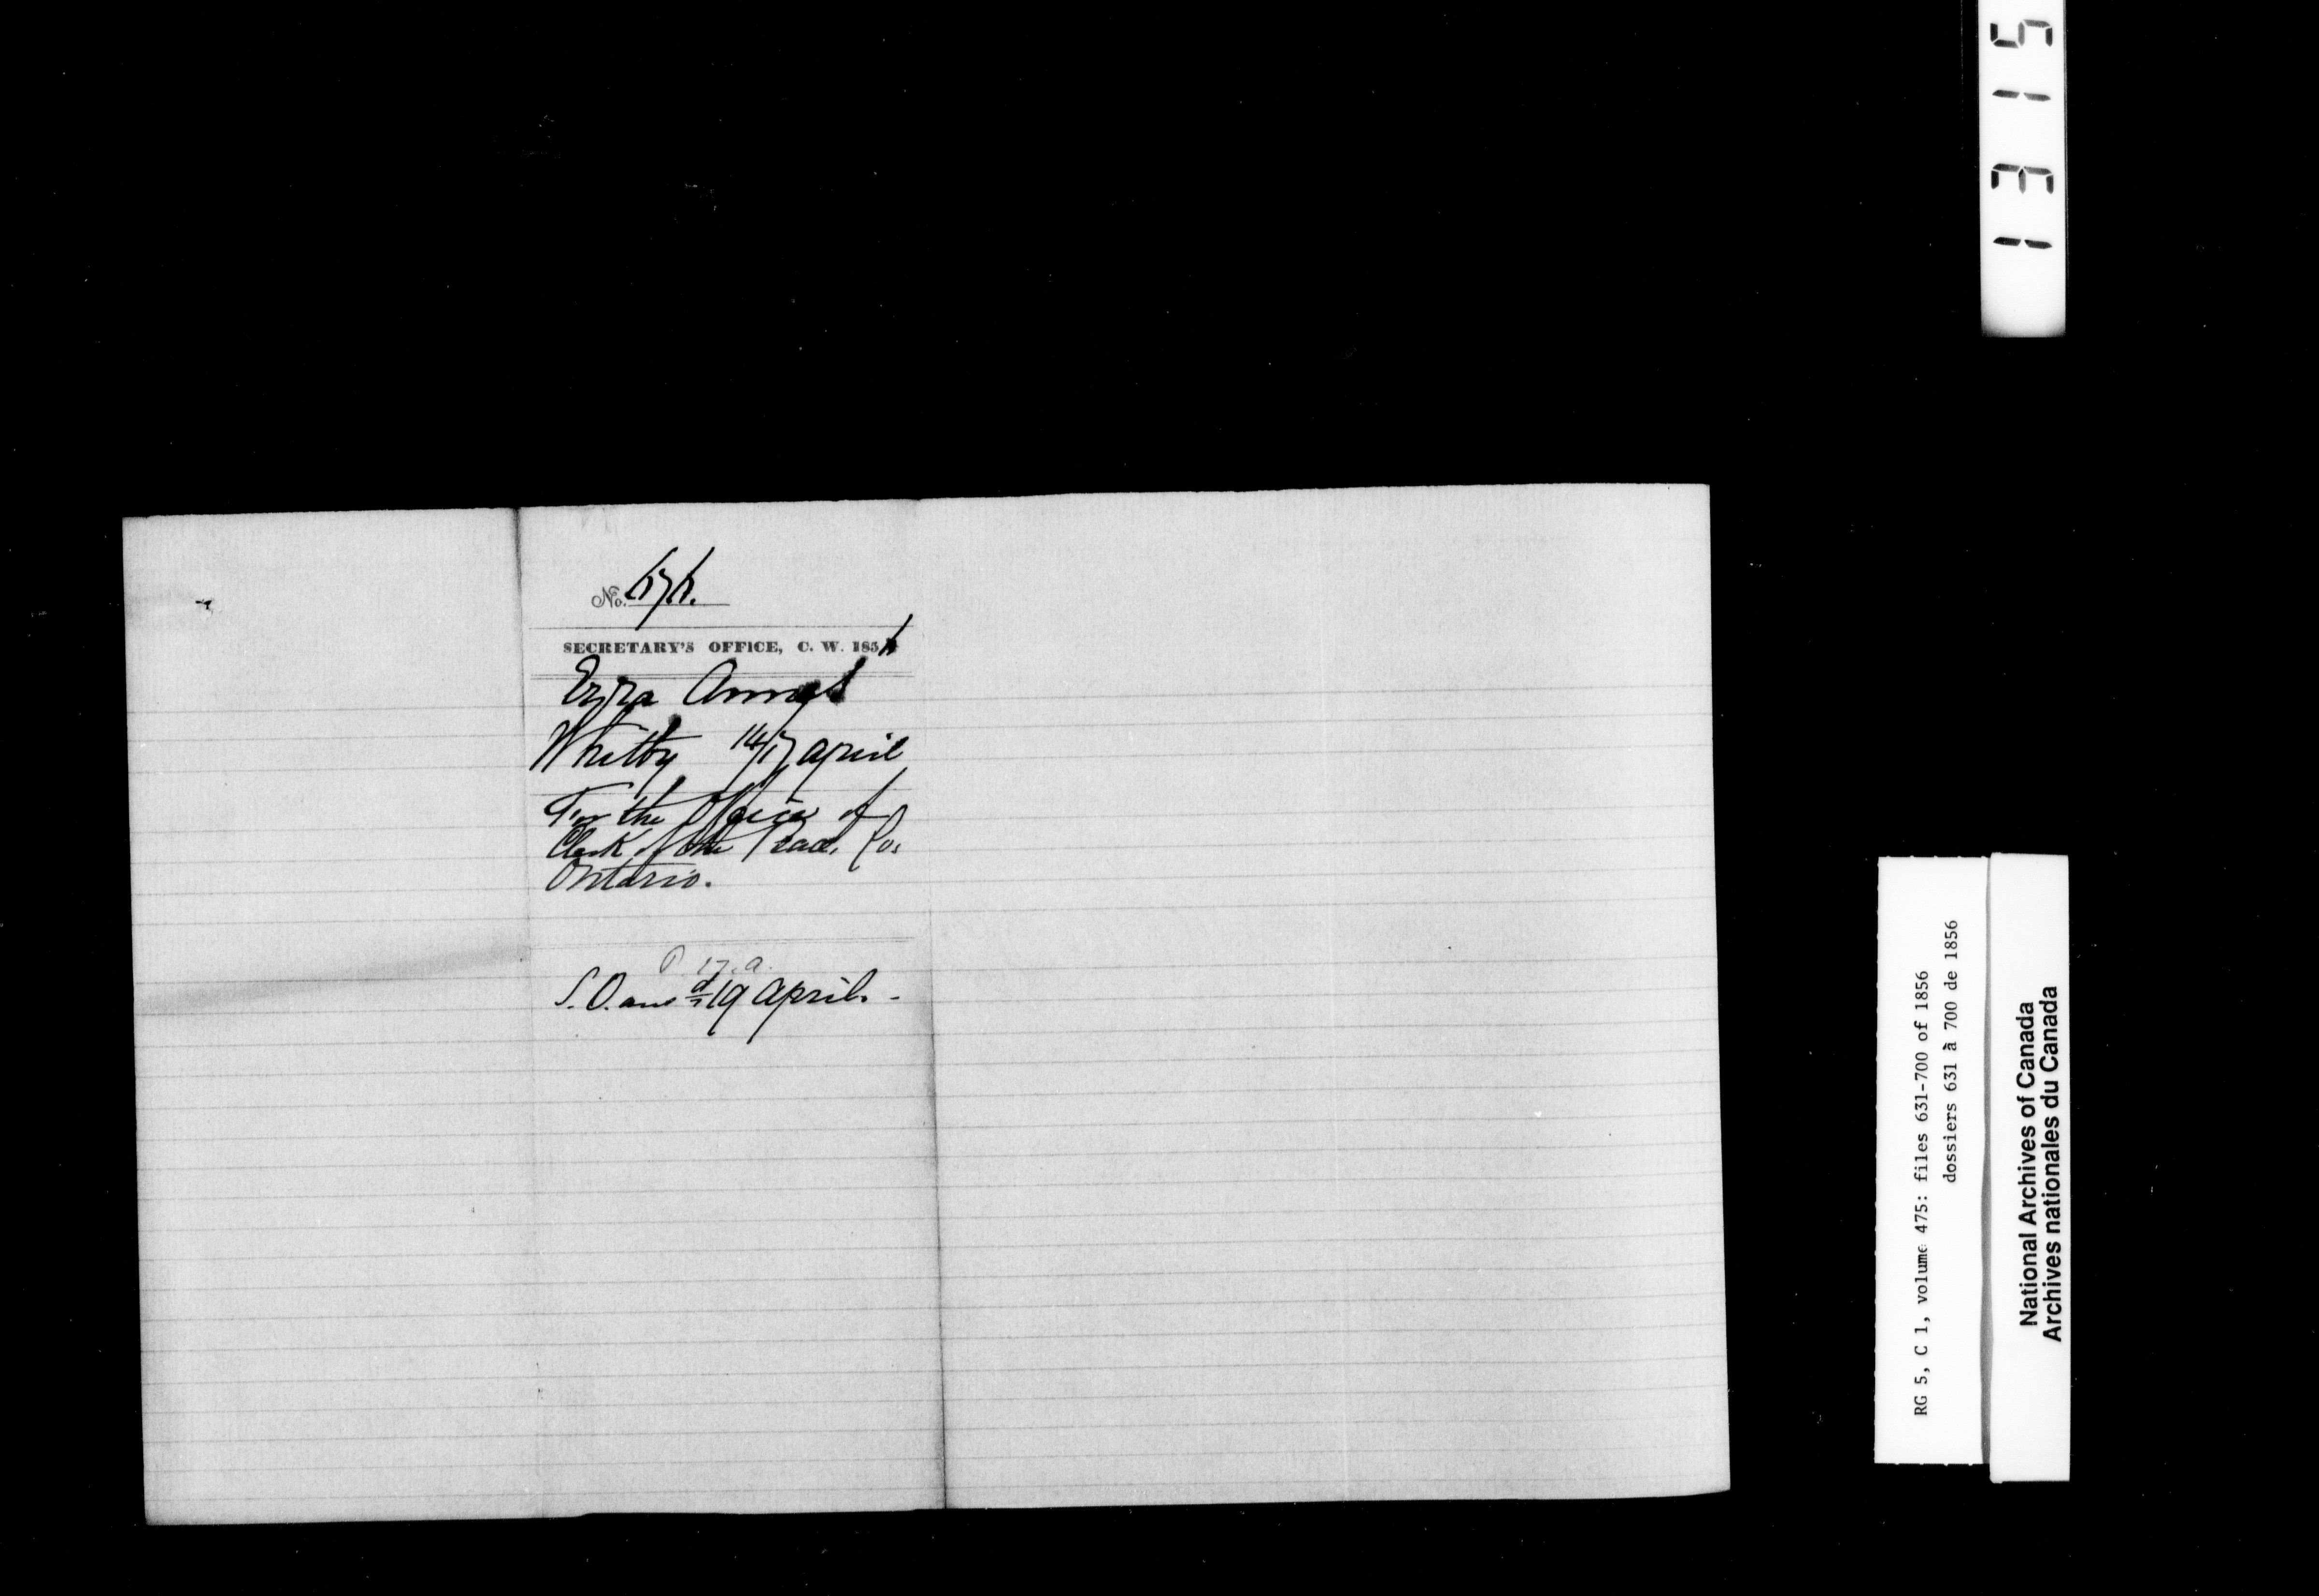 No. 676.
SECRETARY'S OFFICE, C. W. 1856
Ezra Annes
Whitby 14/17 April
For the Office of
Clerk of the Peace, Co.
Ontario.
P. 17. a.
S. O. ansd 19 April. -
1315
RG 5, C 1, volume 475: files 631-700 of 1856
dossiers 631 à 700 de 1856
National Archives of Canada
Archives nationales du Canada